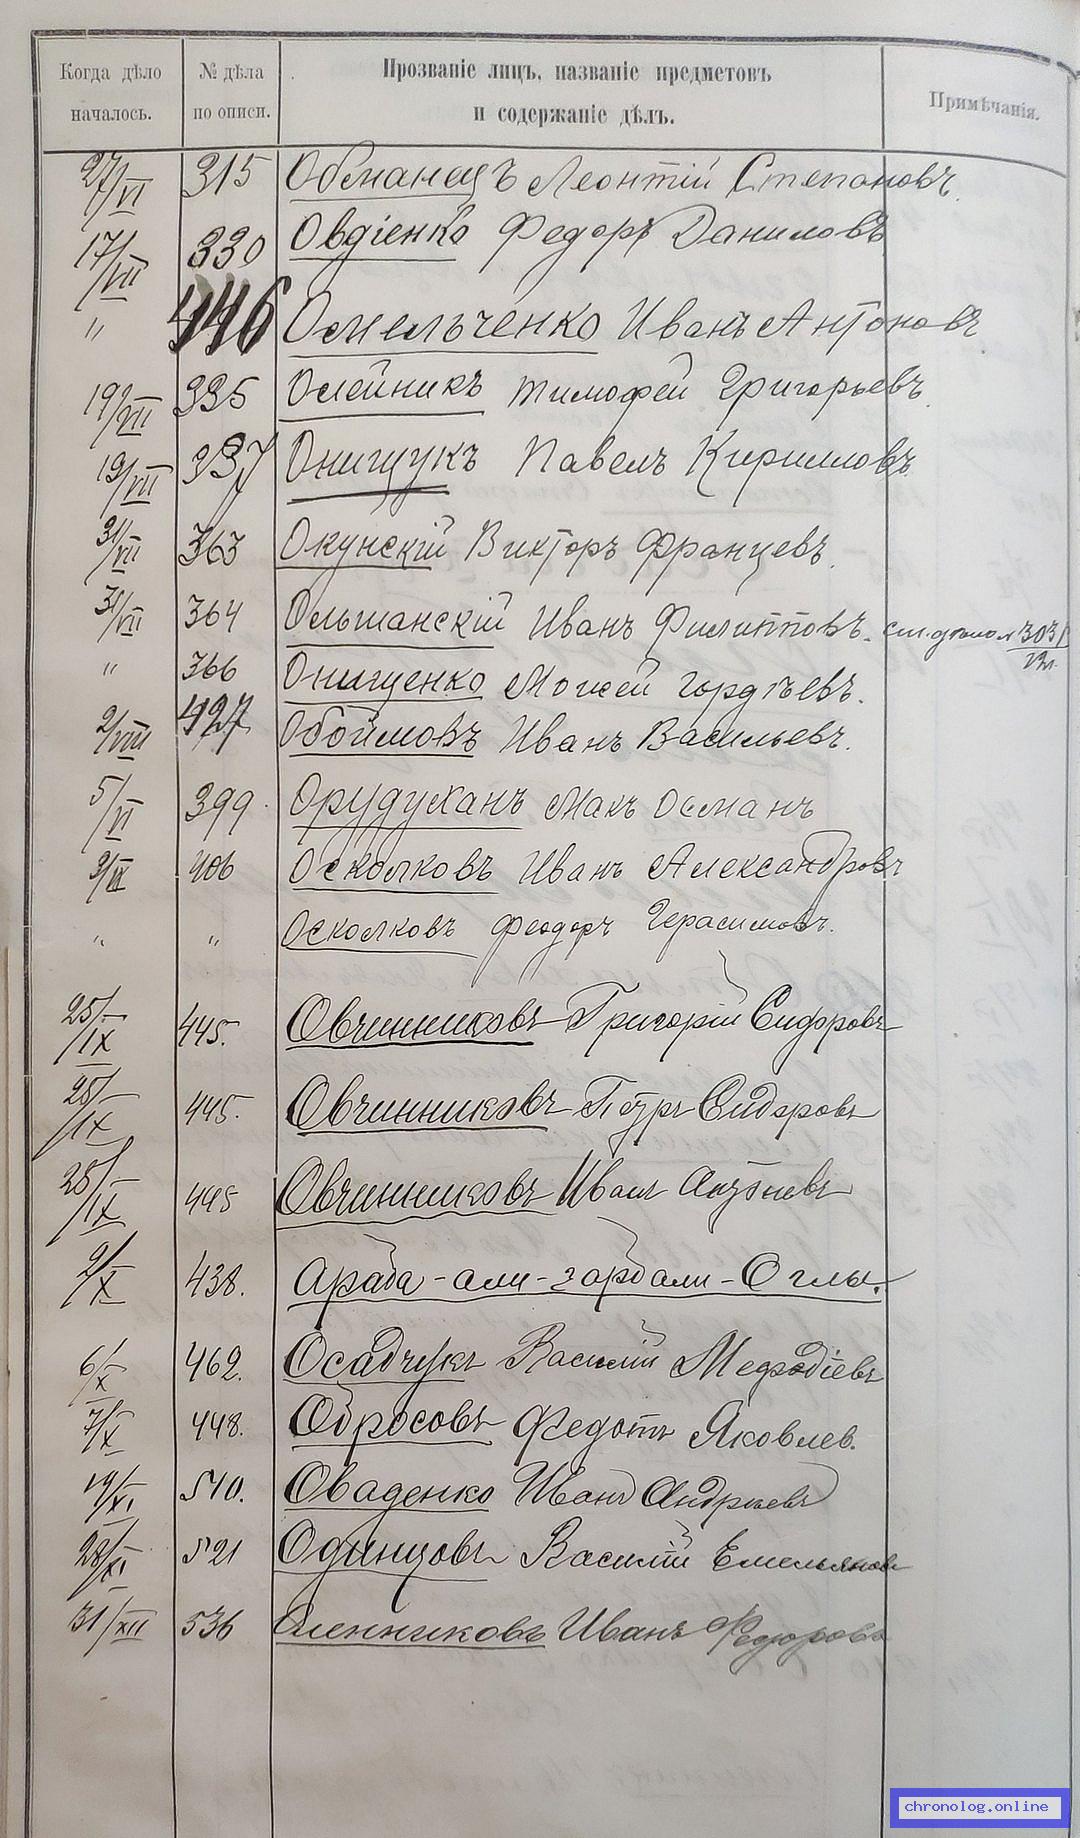 Когда дѣло началось. № дѣла по описи. Прозваніе лицъ, названіе предметовъ и содержаніе дѣлъ. Примѣчанія.
27/VI 315 Обманецъ Леонтій Степановъ.
17/VII 330 Овдіенко Федоръ Даниловъ
" 446 Омельченко Иванъ Антоновъ
19/VII 335 Олейникъ Тимофей Григорьевъ.
19/VII 337 Онищукъ Павелъ Кирилловъ.
31/VII 363 Окунскій Викторъ Францевъ.
31/VII 364 Ольшанскій Иванъ Филипповъ. см. дѣло №
" 366 Онищенко Мойсей Гордѣевъ.
2/VIII 427 Обоймовъ Иванъ Васильевъ.
5/VI 399. Орудуханъ Макъ Османъ
9/IX 406 Осколковъ Иванъ Александровъ
" " Осколковъ Феодоръ Герасимовъ.
25/IX 445. Овчинниковъ Григорій Сидоровъ
25/IX 445. Овчинниковъ Петръ Сидоровъ
25/IX 445 Овчинниковъ Иванъ
2/X 438. Араба-али-зорбали-Оглы.
6/X 462. Осадчукъ Василій Мефодіевъ
7/X 448. Обросовъ Федотъ Яковлев.
19/XI 510. Оваденко Иванъ Андреевъ
28/XI 521 Одинцовъ Василій Емельяновъ
31/XII 536 Оленниковъ Иванъ Федоровъ
chronolog.online